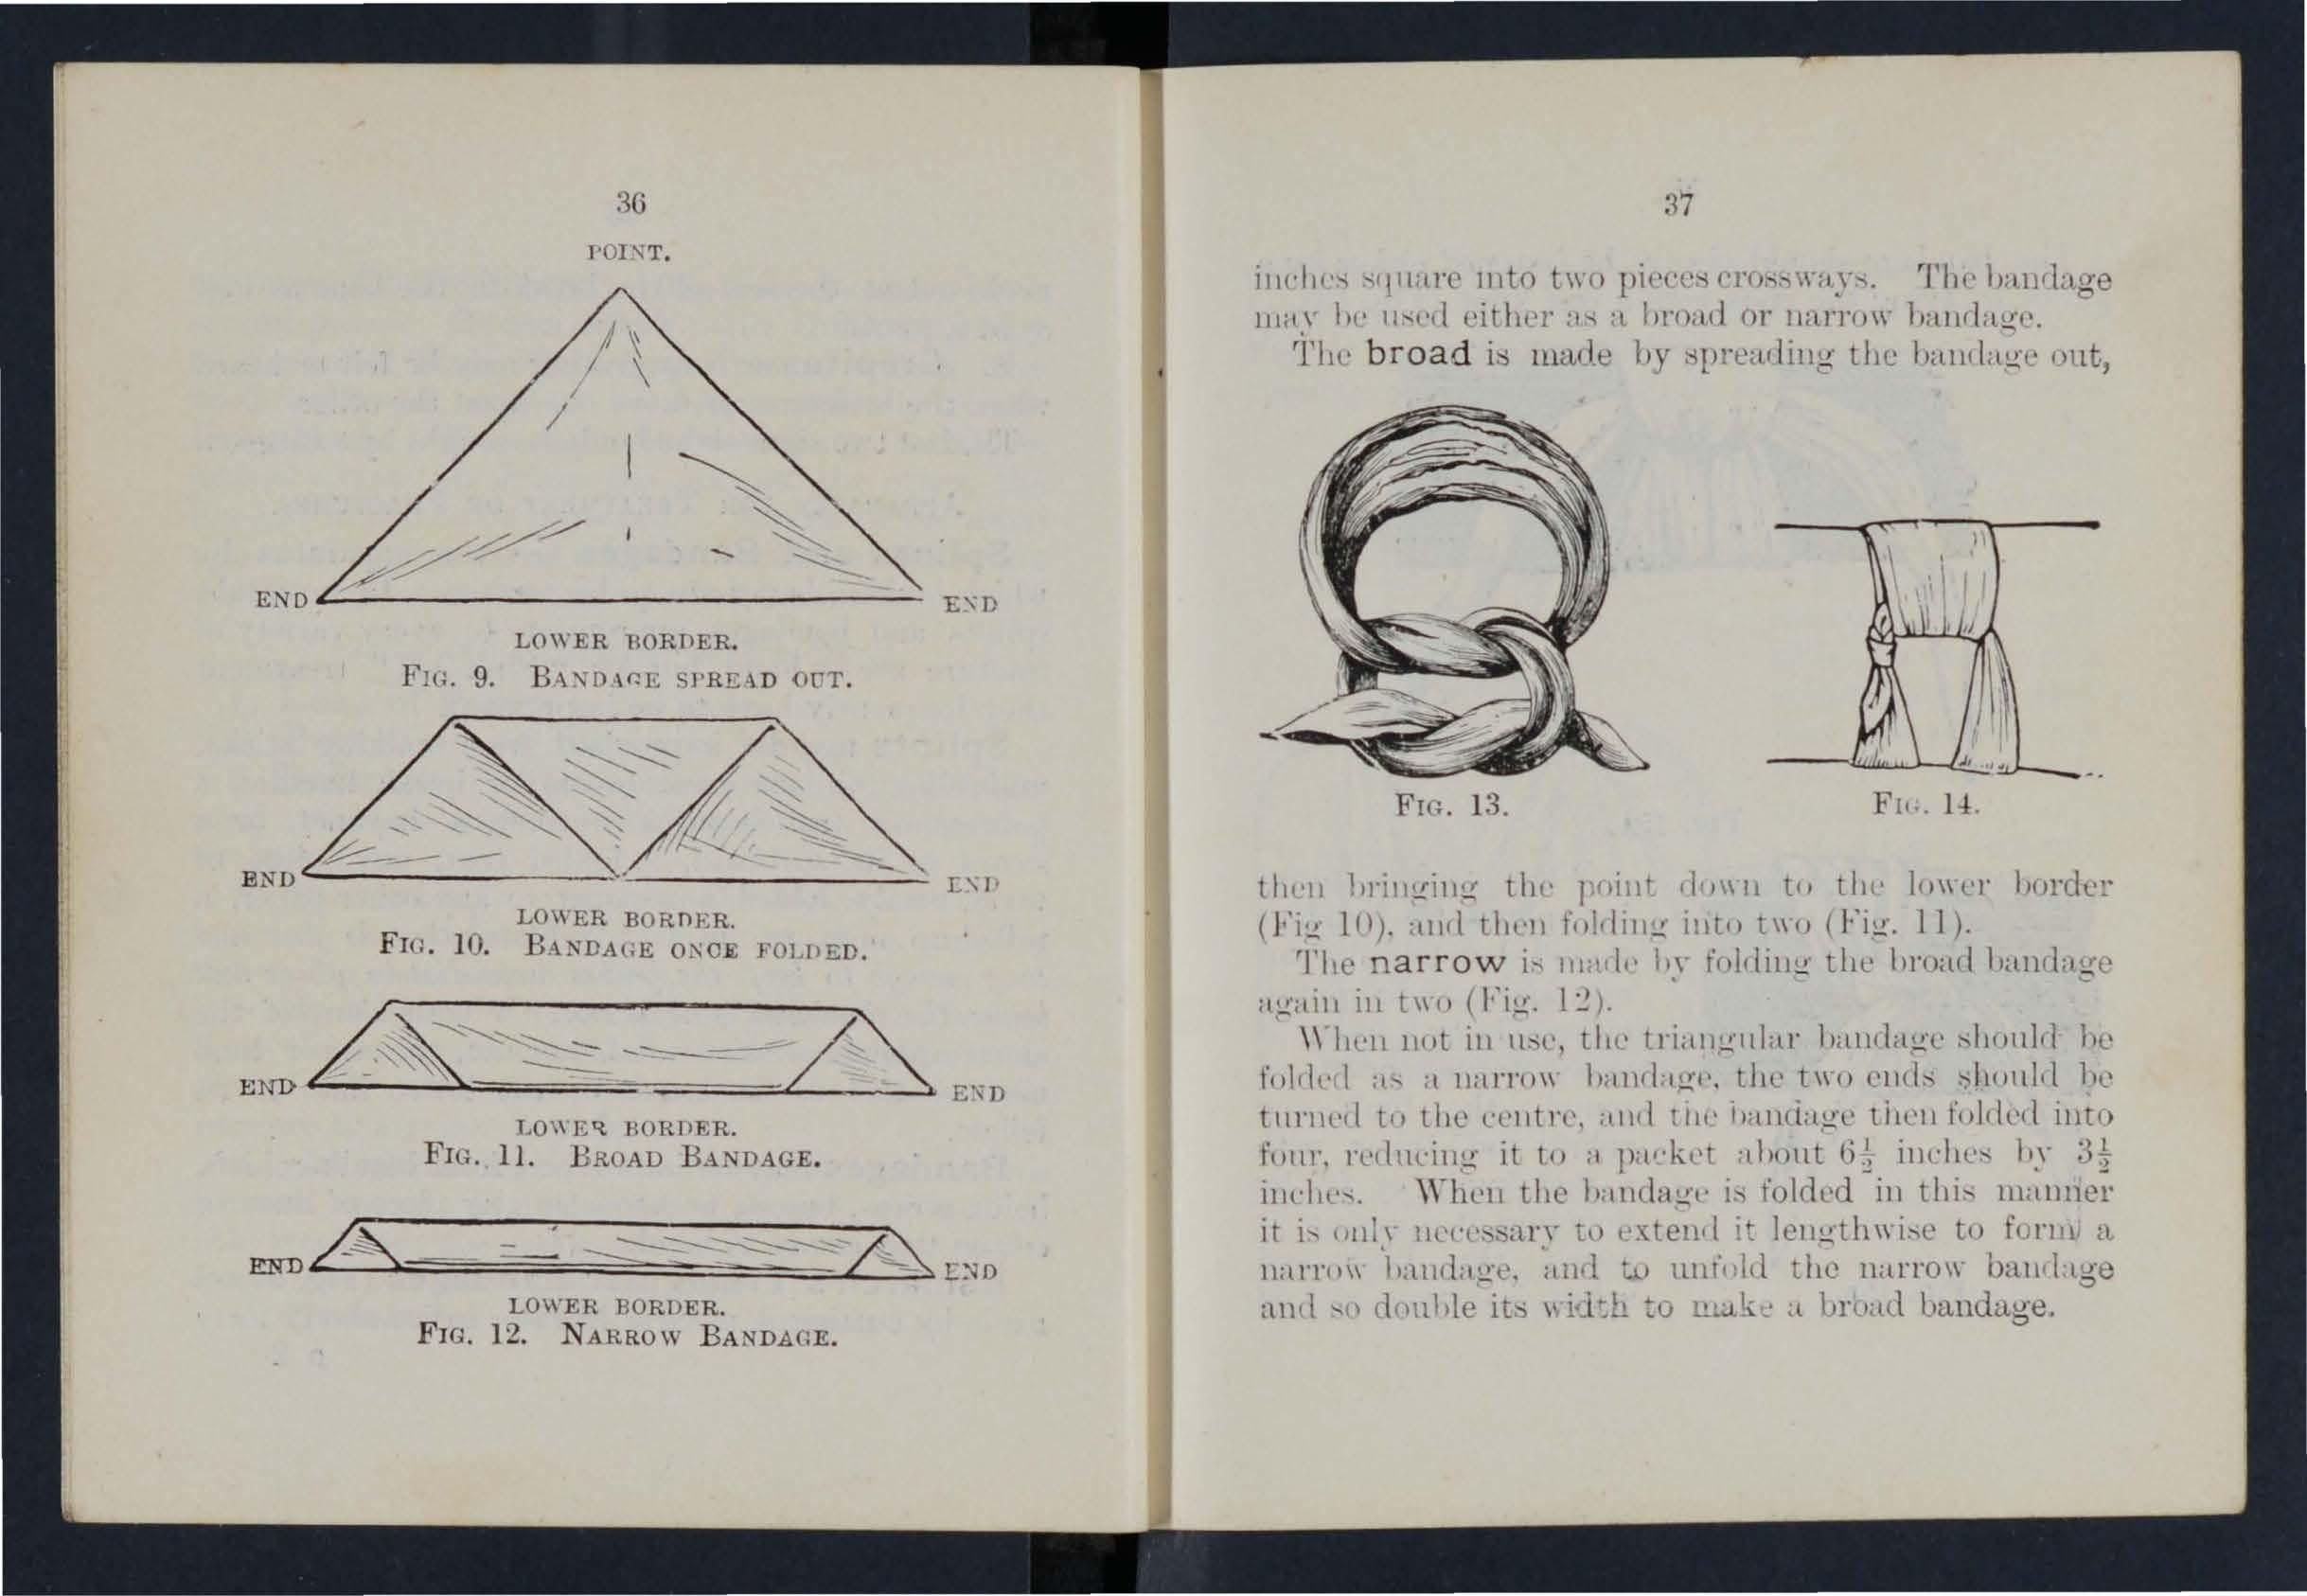 36
POINT.
END
END
LOWER BORDER.
FIG. 9. BANDAGE SPREAD OUT.
END
END
LOWER BORDER.
FIG. 10. BANDAGE ONCE FOLDED.
END
END
LOWER BORDER.
FIG. 11. BROAD BANDAGE.
END
END
LOWER BORDER.
FIG. 12. NARROW BANDAGE.
37
inches square into two pieces crossways. The bandage
may be used either as a broad or narrow bandage.
The broad is made by spreading the bandage out,
FIG. 13.
FIG. 14.
then bringing the point down to the lower border
(Fig 10), and then folding into two (Fig. 11).
The narrow is made by folding the broad bandage
again in two (Fig. 12).
When not in use, the triangular bandage should be
folded as a narrow bandage, the two ends should be
turned to the centre, and the bandage then folded into
four, reducing it to a packet about 6½ inches by 3½
inches. When the bandage is folded in this manner
it is only necessary to extend it lengthwise to form a
narrow bandage, and to unfold the narrow bandage
and so double its width to make a broad bandage.